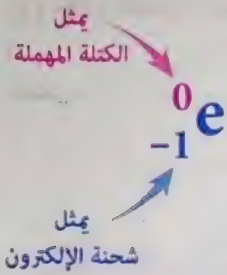 يمثل
الكتلة المهملة
0
e
−1
يمثل
شحنة الإلكترون